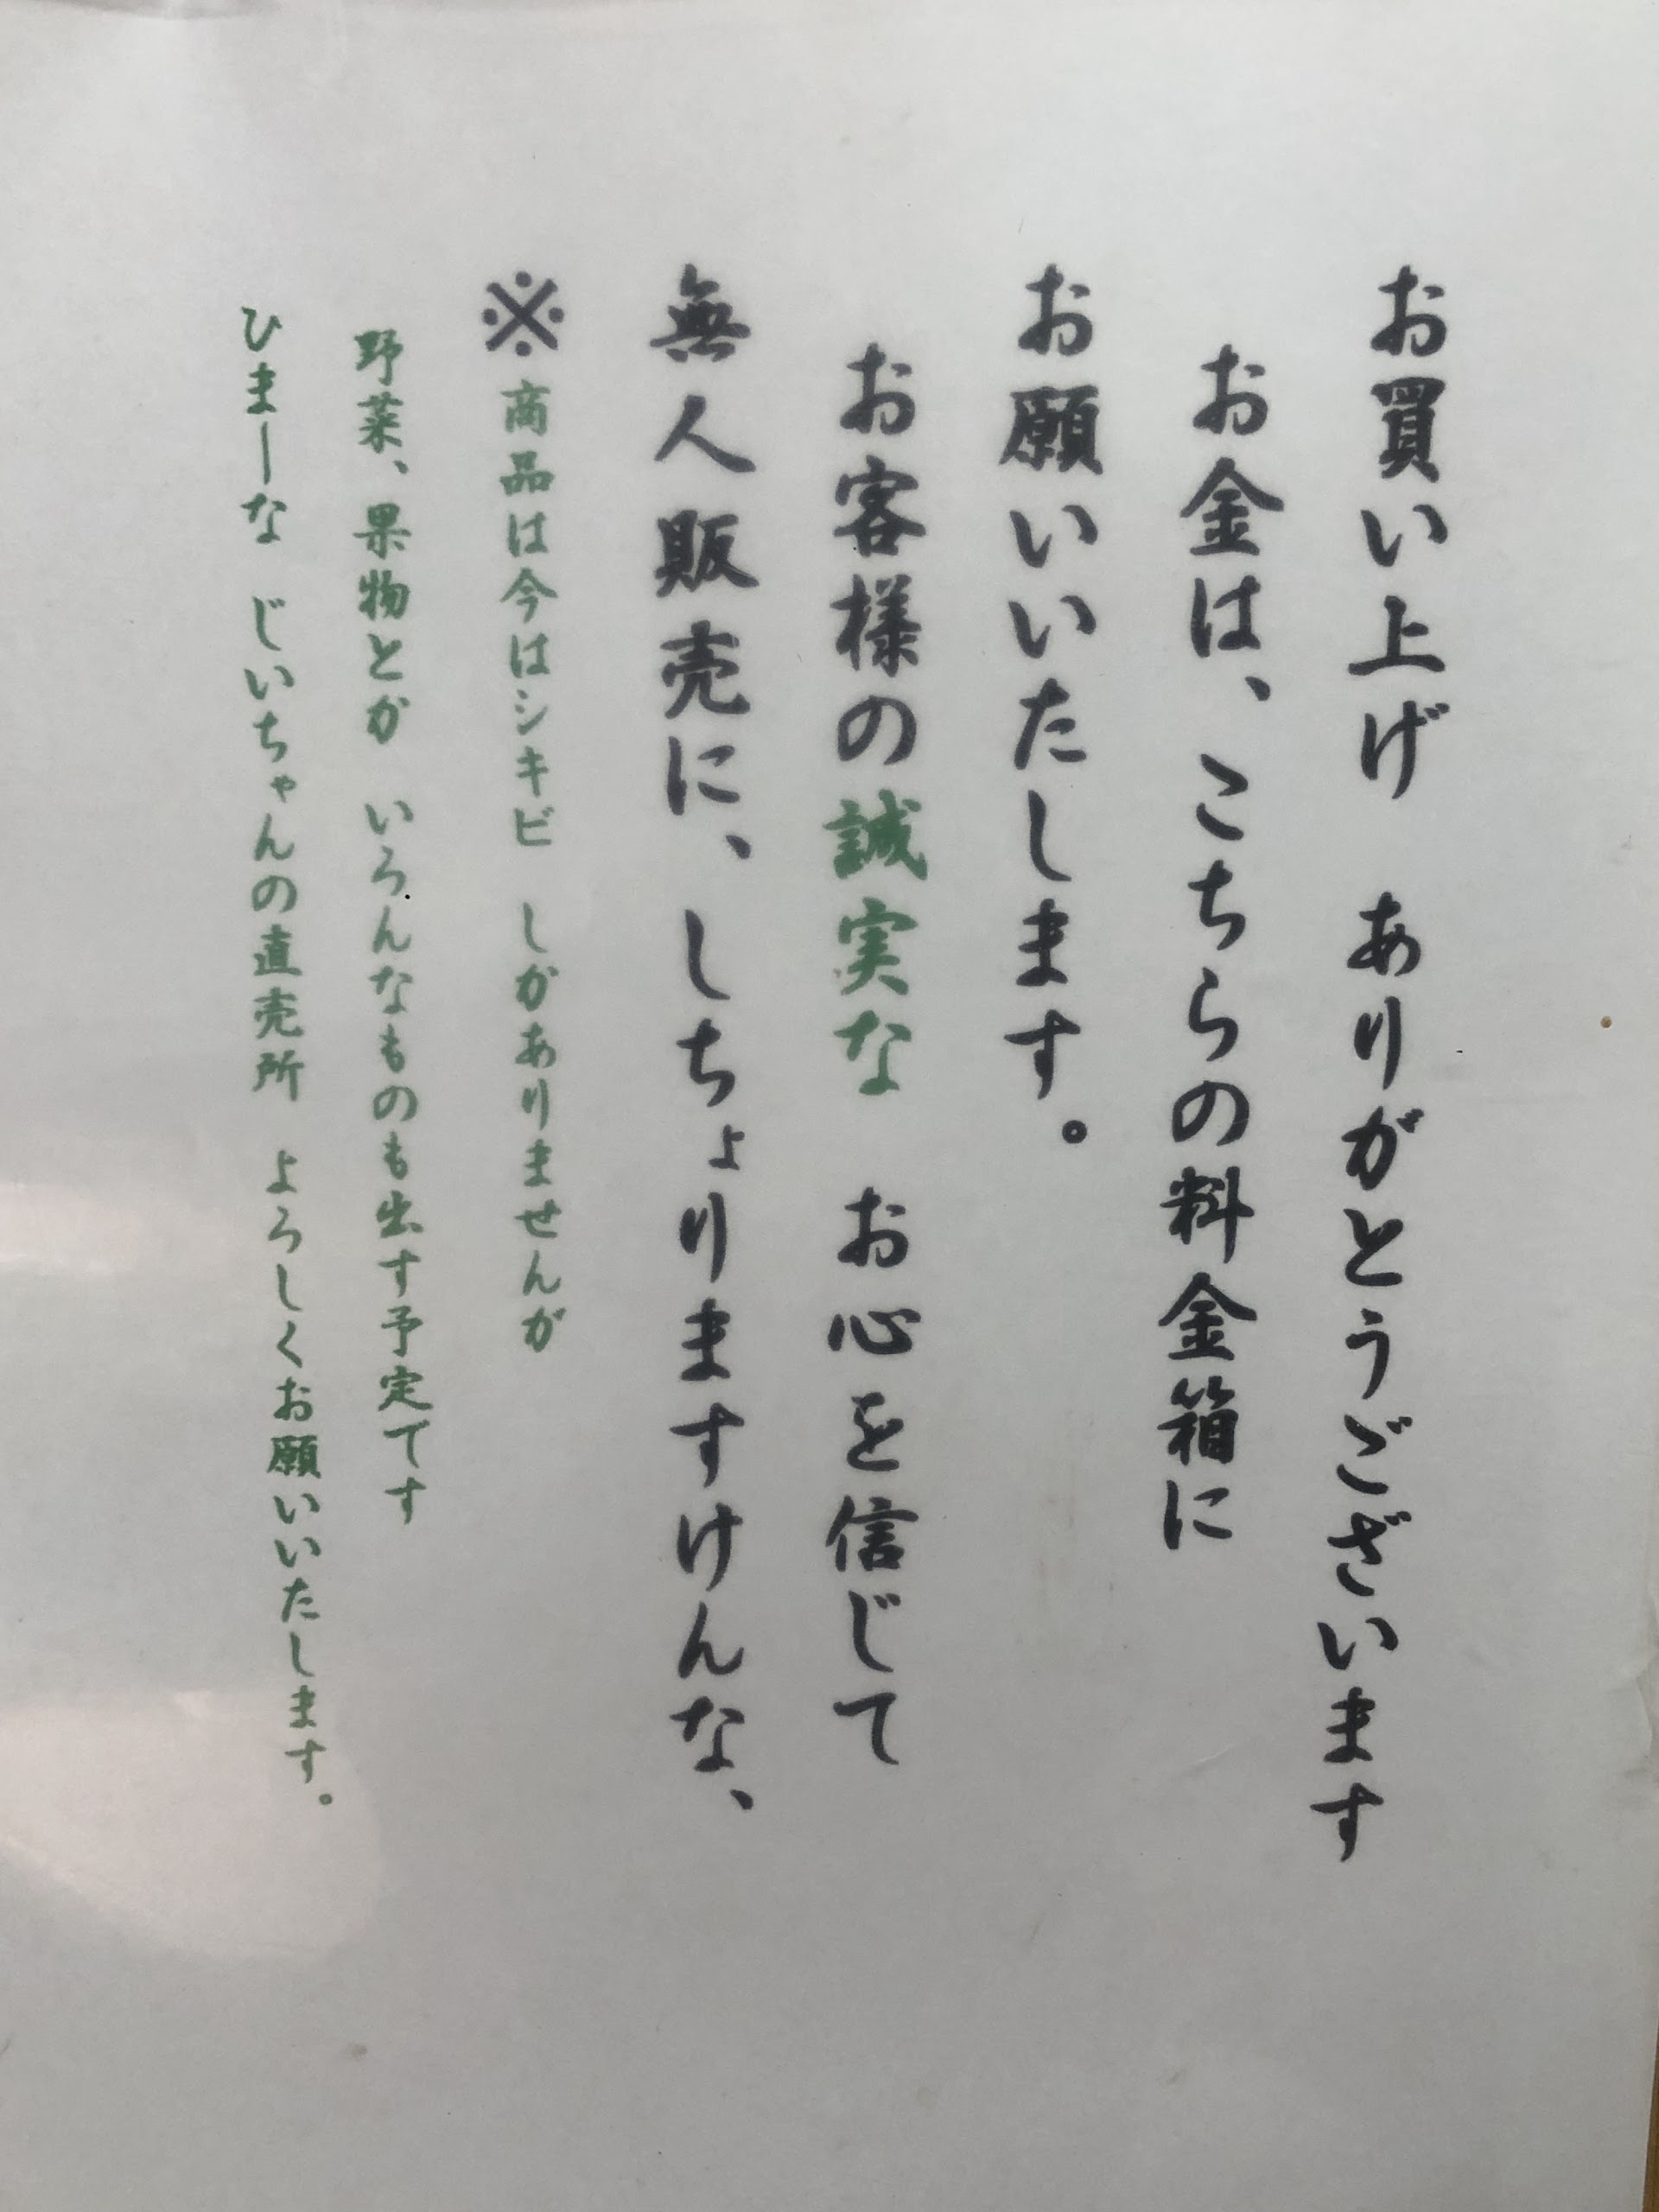 お買い上げ　ありがとうございます
お金は、こちらの料金箱に
お願いいたします。
お客様の誠実な　お心を信じて
無人販売に、しちょりますけんな、
※商品は今はシキビ　しかありませんが
野菜、果物とか　いろんなものも出す予定です
ひまーな　じいちゃんの直売所　よろしくお願いいたします。